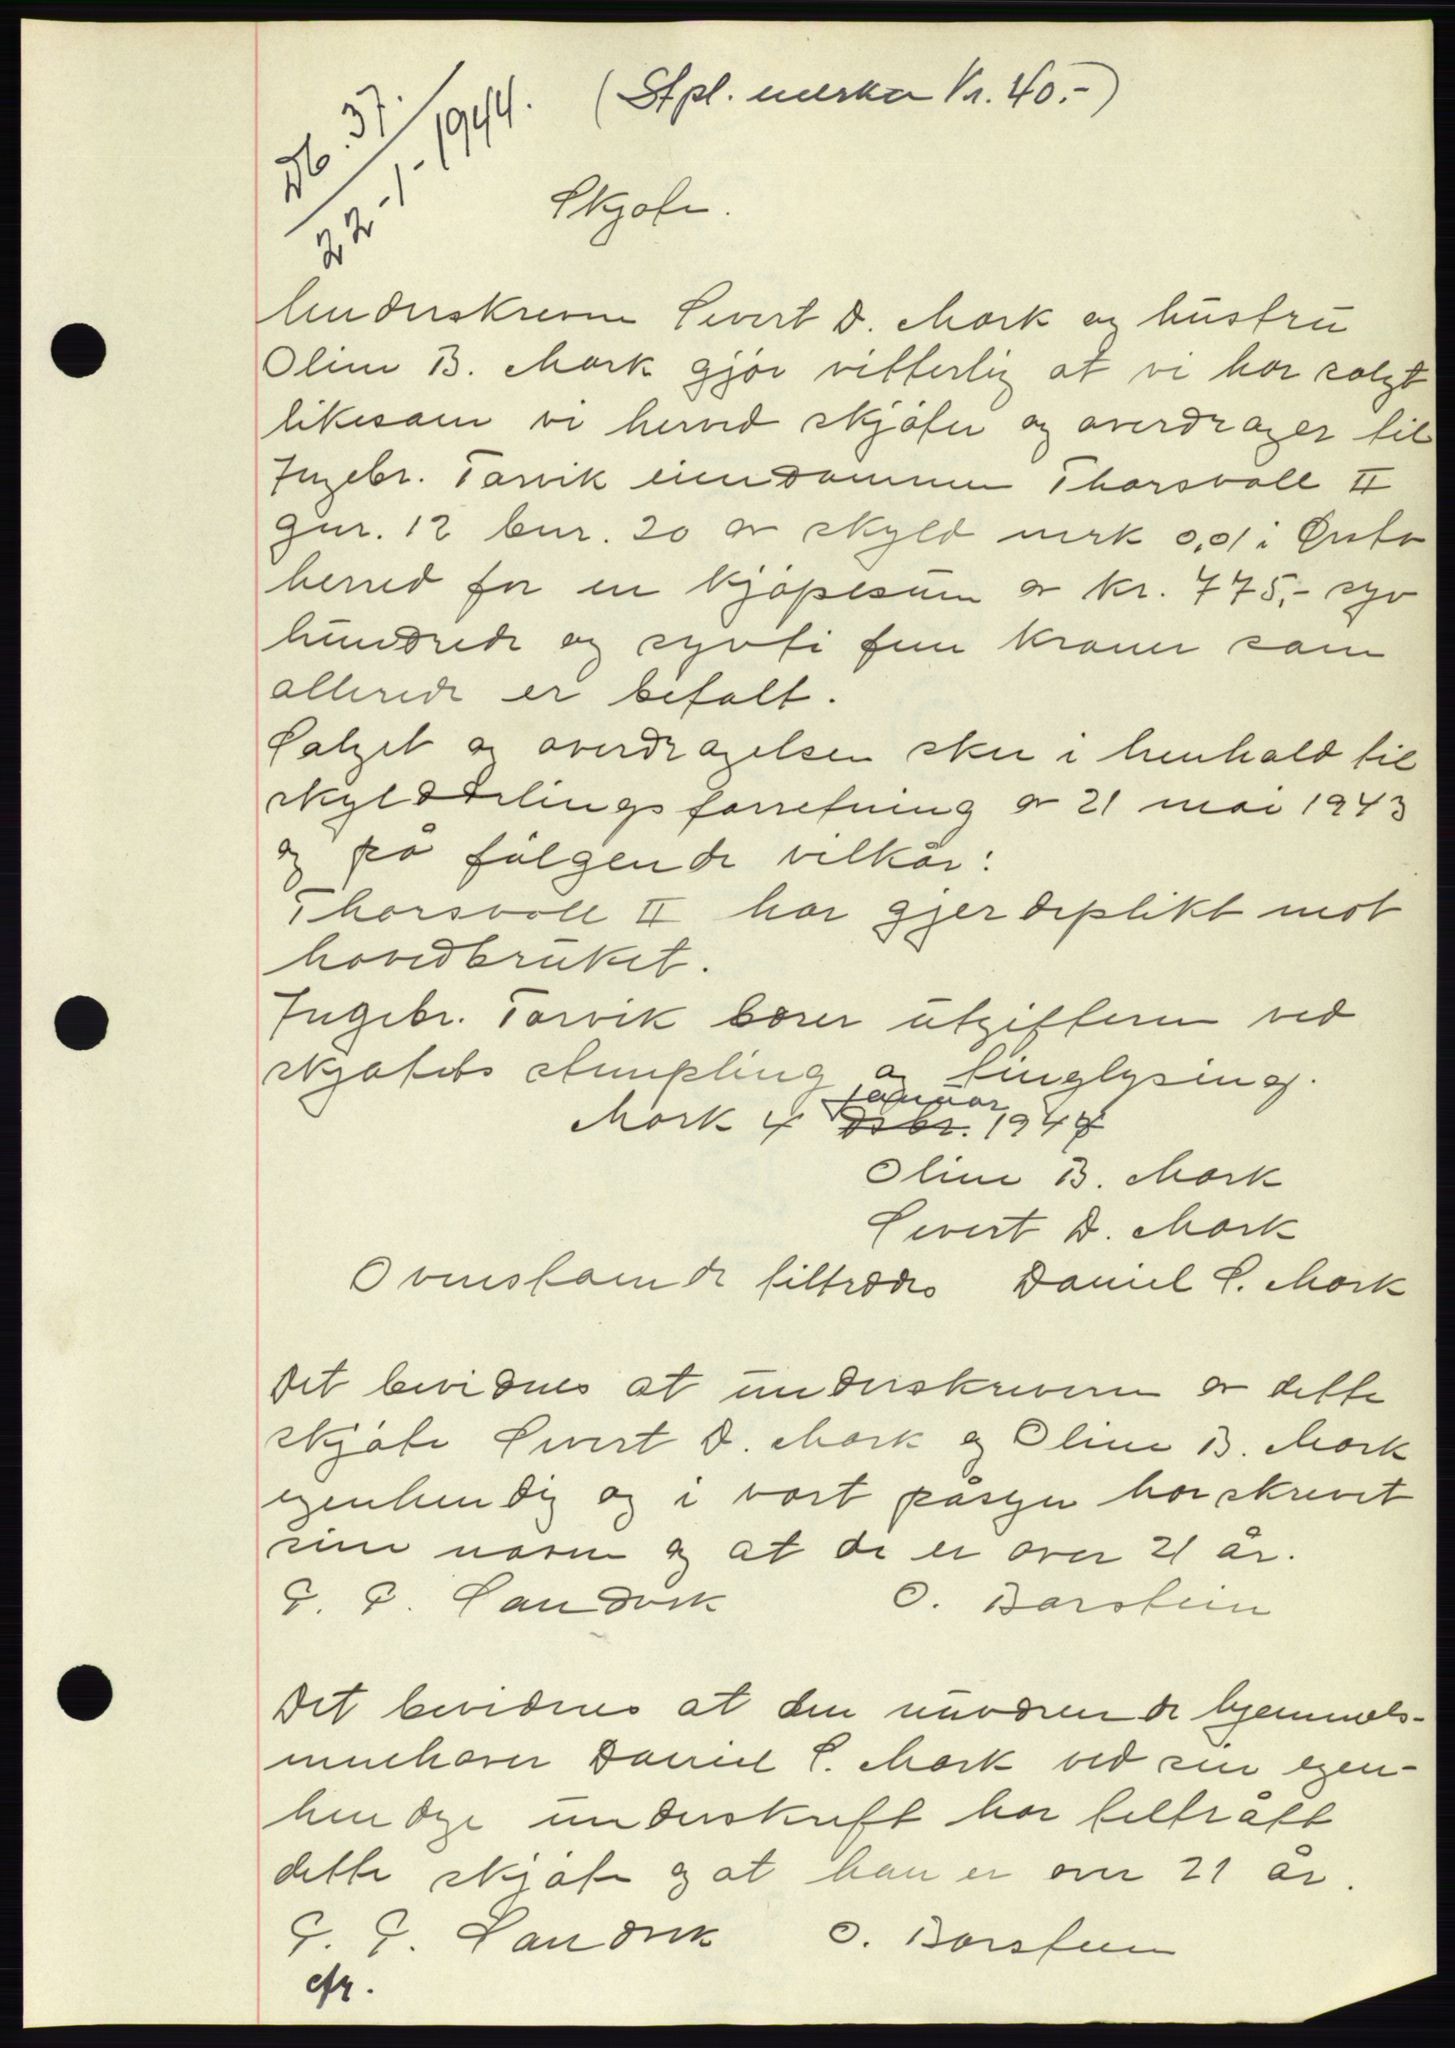 Db. 37.
22-1-1944.
(Stpl. merker Kr. 40.-)
Skjøte.
Underskrevne Sivert D. Mork og hustru
Oline B. Mork gjør vitterlig at vi har solgt
likesom vi herved skjøter og overdrager til
Ingebr. Torvik eiendommen Thorsvoll II
gnr. 12 bnr. 20 av skyld mrk 0,01 i Ørsta
herred for en kjøpesum av kr. 775,- syv
hundrede og sytti fem kroner som
allerede er betalt.
Salget og overdragelsen sker i henhold til
skylddelingsforretning av 21 mai 1943
og på følgende vilkår:
Thorsvoll II har gjerdeplikt mot
hovedbruket.
Ingebr. Torvik bærer utgiftene ved
skjøtets stempling og tinglysing.
januar
Mork 4 Dsbr. 1944
Oline B. Mork
Sivert D. Mork
Ovenstaende tiltredes Daniel S. Mork
Det bevidnes at underskriverne av dette
skjøte Sivert D. Mork og Oline B. Mork
egenhendig og i vort påsyn har skrevet
sine navn og at de er over 21 år.
P. P. Sandvik O. Barstein
Det bevidnes at den nuværende hjemmels-
innehaver Daniel S. Mork ved sin egen-
hendige underskrift har tiltrått
dette skjøte og at han er over 21 år.
P. P. Sandvik O. Barstein
cfr.